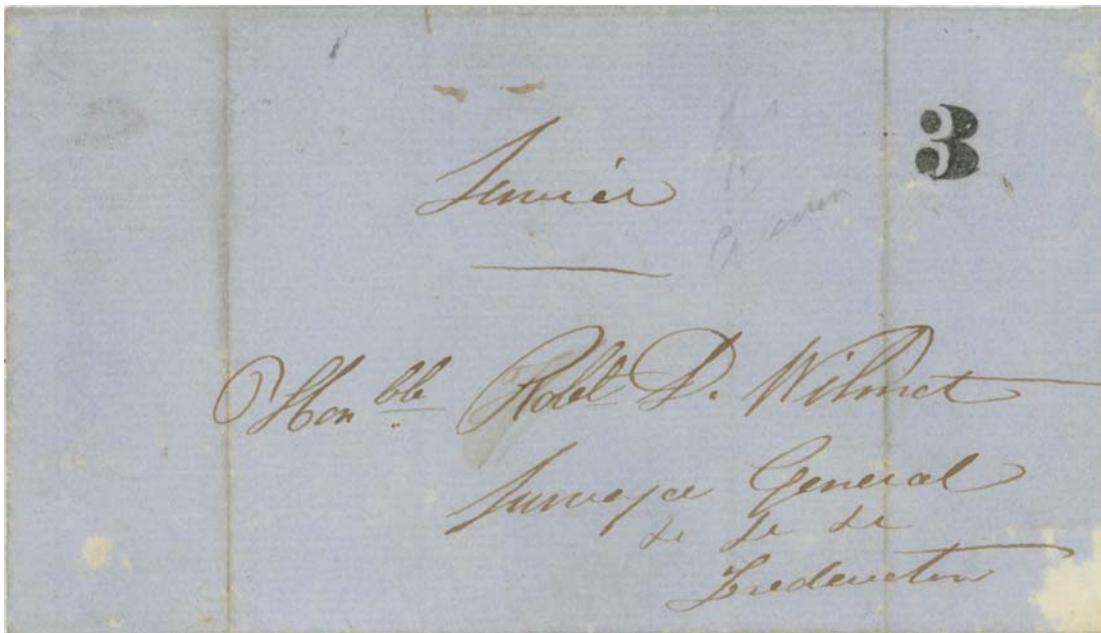 3
Service
Honble Robt D. Wilmot
Surveyor General
&c &c &c
Fredericton